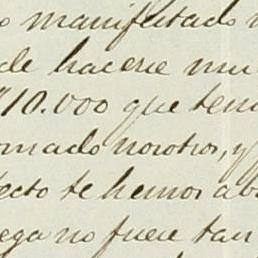 o manifestado
de hacerse mu
"10.000 que ten
omado nosotros, y
fecto te hemos ab
ega no fuese tan